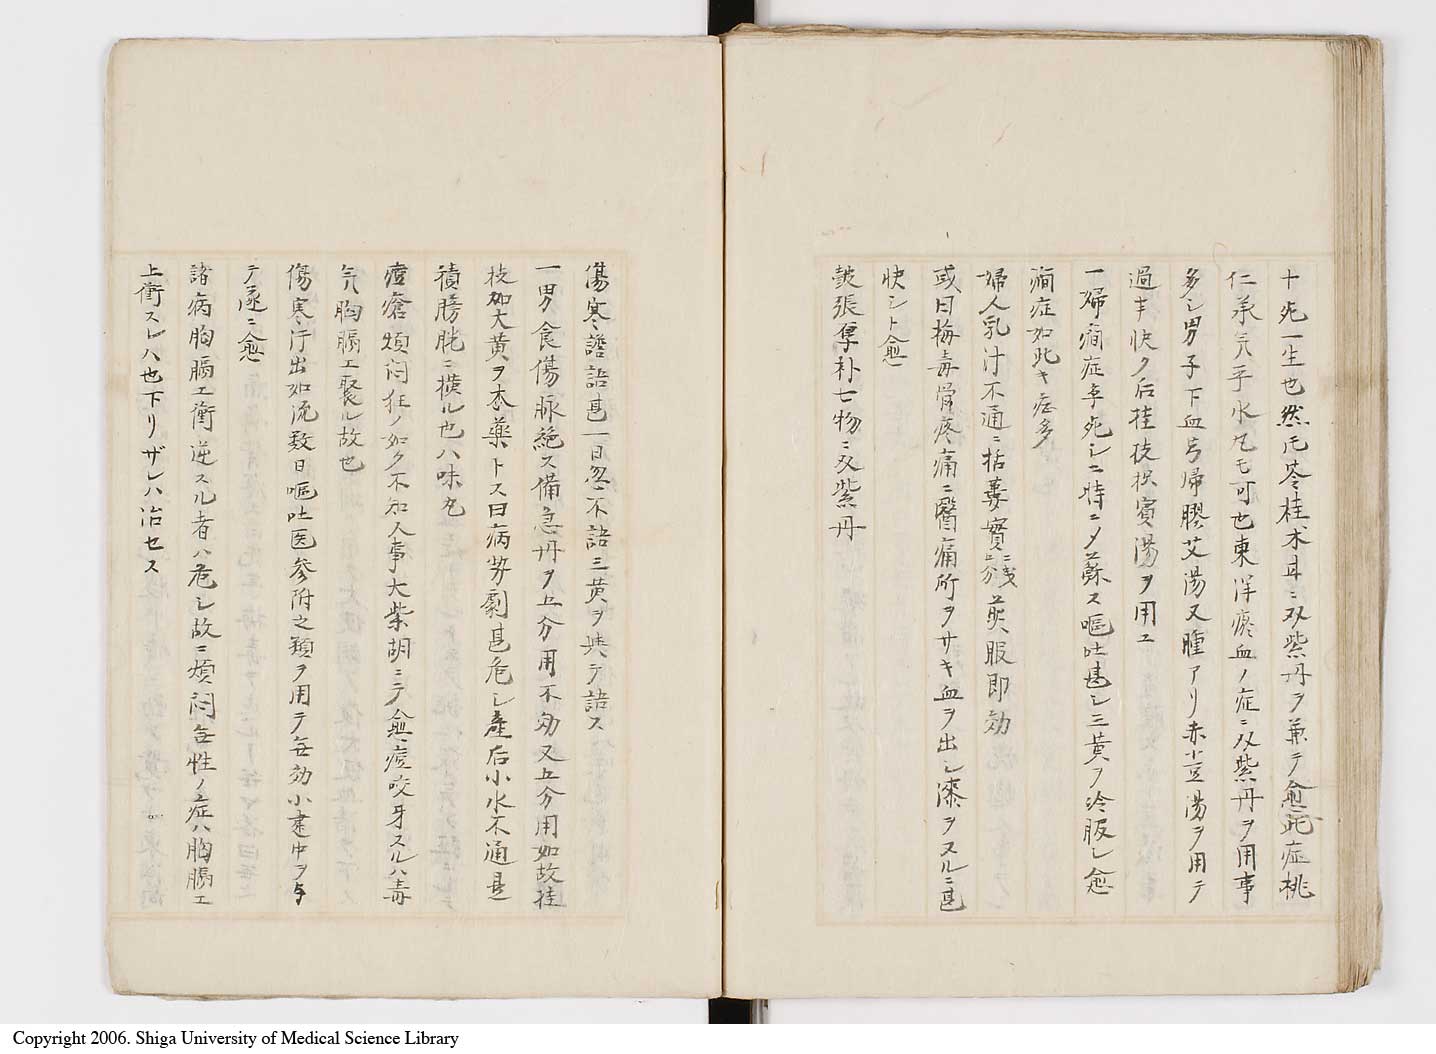 十死一生也然𪜈苓桂朮耳ニ双紫丹ヲ兼テ愈此症桃
仁承気乎水丸モ可也東洋瘀血ノ症ニ双紫丹ヲ用事
多シ男子下血芎帰膠艾湯又腫アリ赤小豆湯ヲ用テ
過半快夕后桂枝枳實湯ヲ用ユ
一婦癇症卒死シ二時ニ〆蘇ス嘔吐甚シ三黄ヲ冷服シ愈
癇症如此キ症多
婦人乳汁不通ニ括蔞實二戔二分煎服即効
或曰梅毒骨疼痛ニ醫痛所ヲサキ血ヲ出シ漆ヲヌルニ甚
快シト愈
皷張厚朴七物ニ双紫丹
傷寒譫語甚一日忽不語三黄ヲ與テ語ス
一男食傷脉絶ス備急丹ヲ五分用不効又五分用如故桂
枝加大黄ヲ本藥トス曰病勢劇甚危シ產后小水不通是
積膀胱ニ横ル也八味丸
痘瘡煩悶狂ノ如ク不知人事大柴胡ニテ愈痘咬牙スルハ毒
気胸膈エ聚ル故也
傷寒汗出如流数日嘔吐医参附之類ヲ用テ無効小建中ヲ与
テ遂ニ愈
諸病胸膈エ衝逆スル者ハ危シ故ニ煩悶無性ノ症ハ胸膈エ
上衝スレハ也下リザレハ治セス
Copyright 2006. Shiga University of Medical Science Library